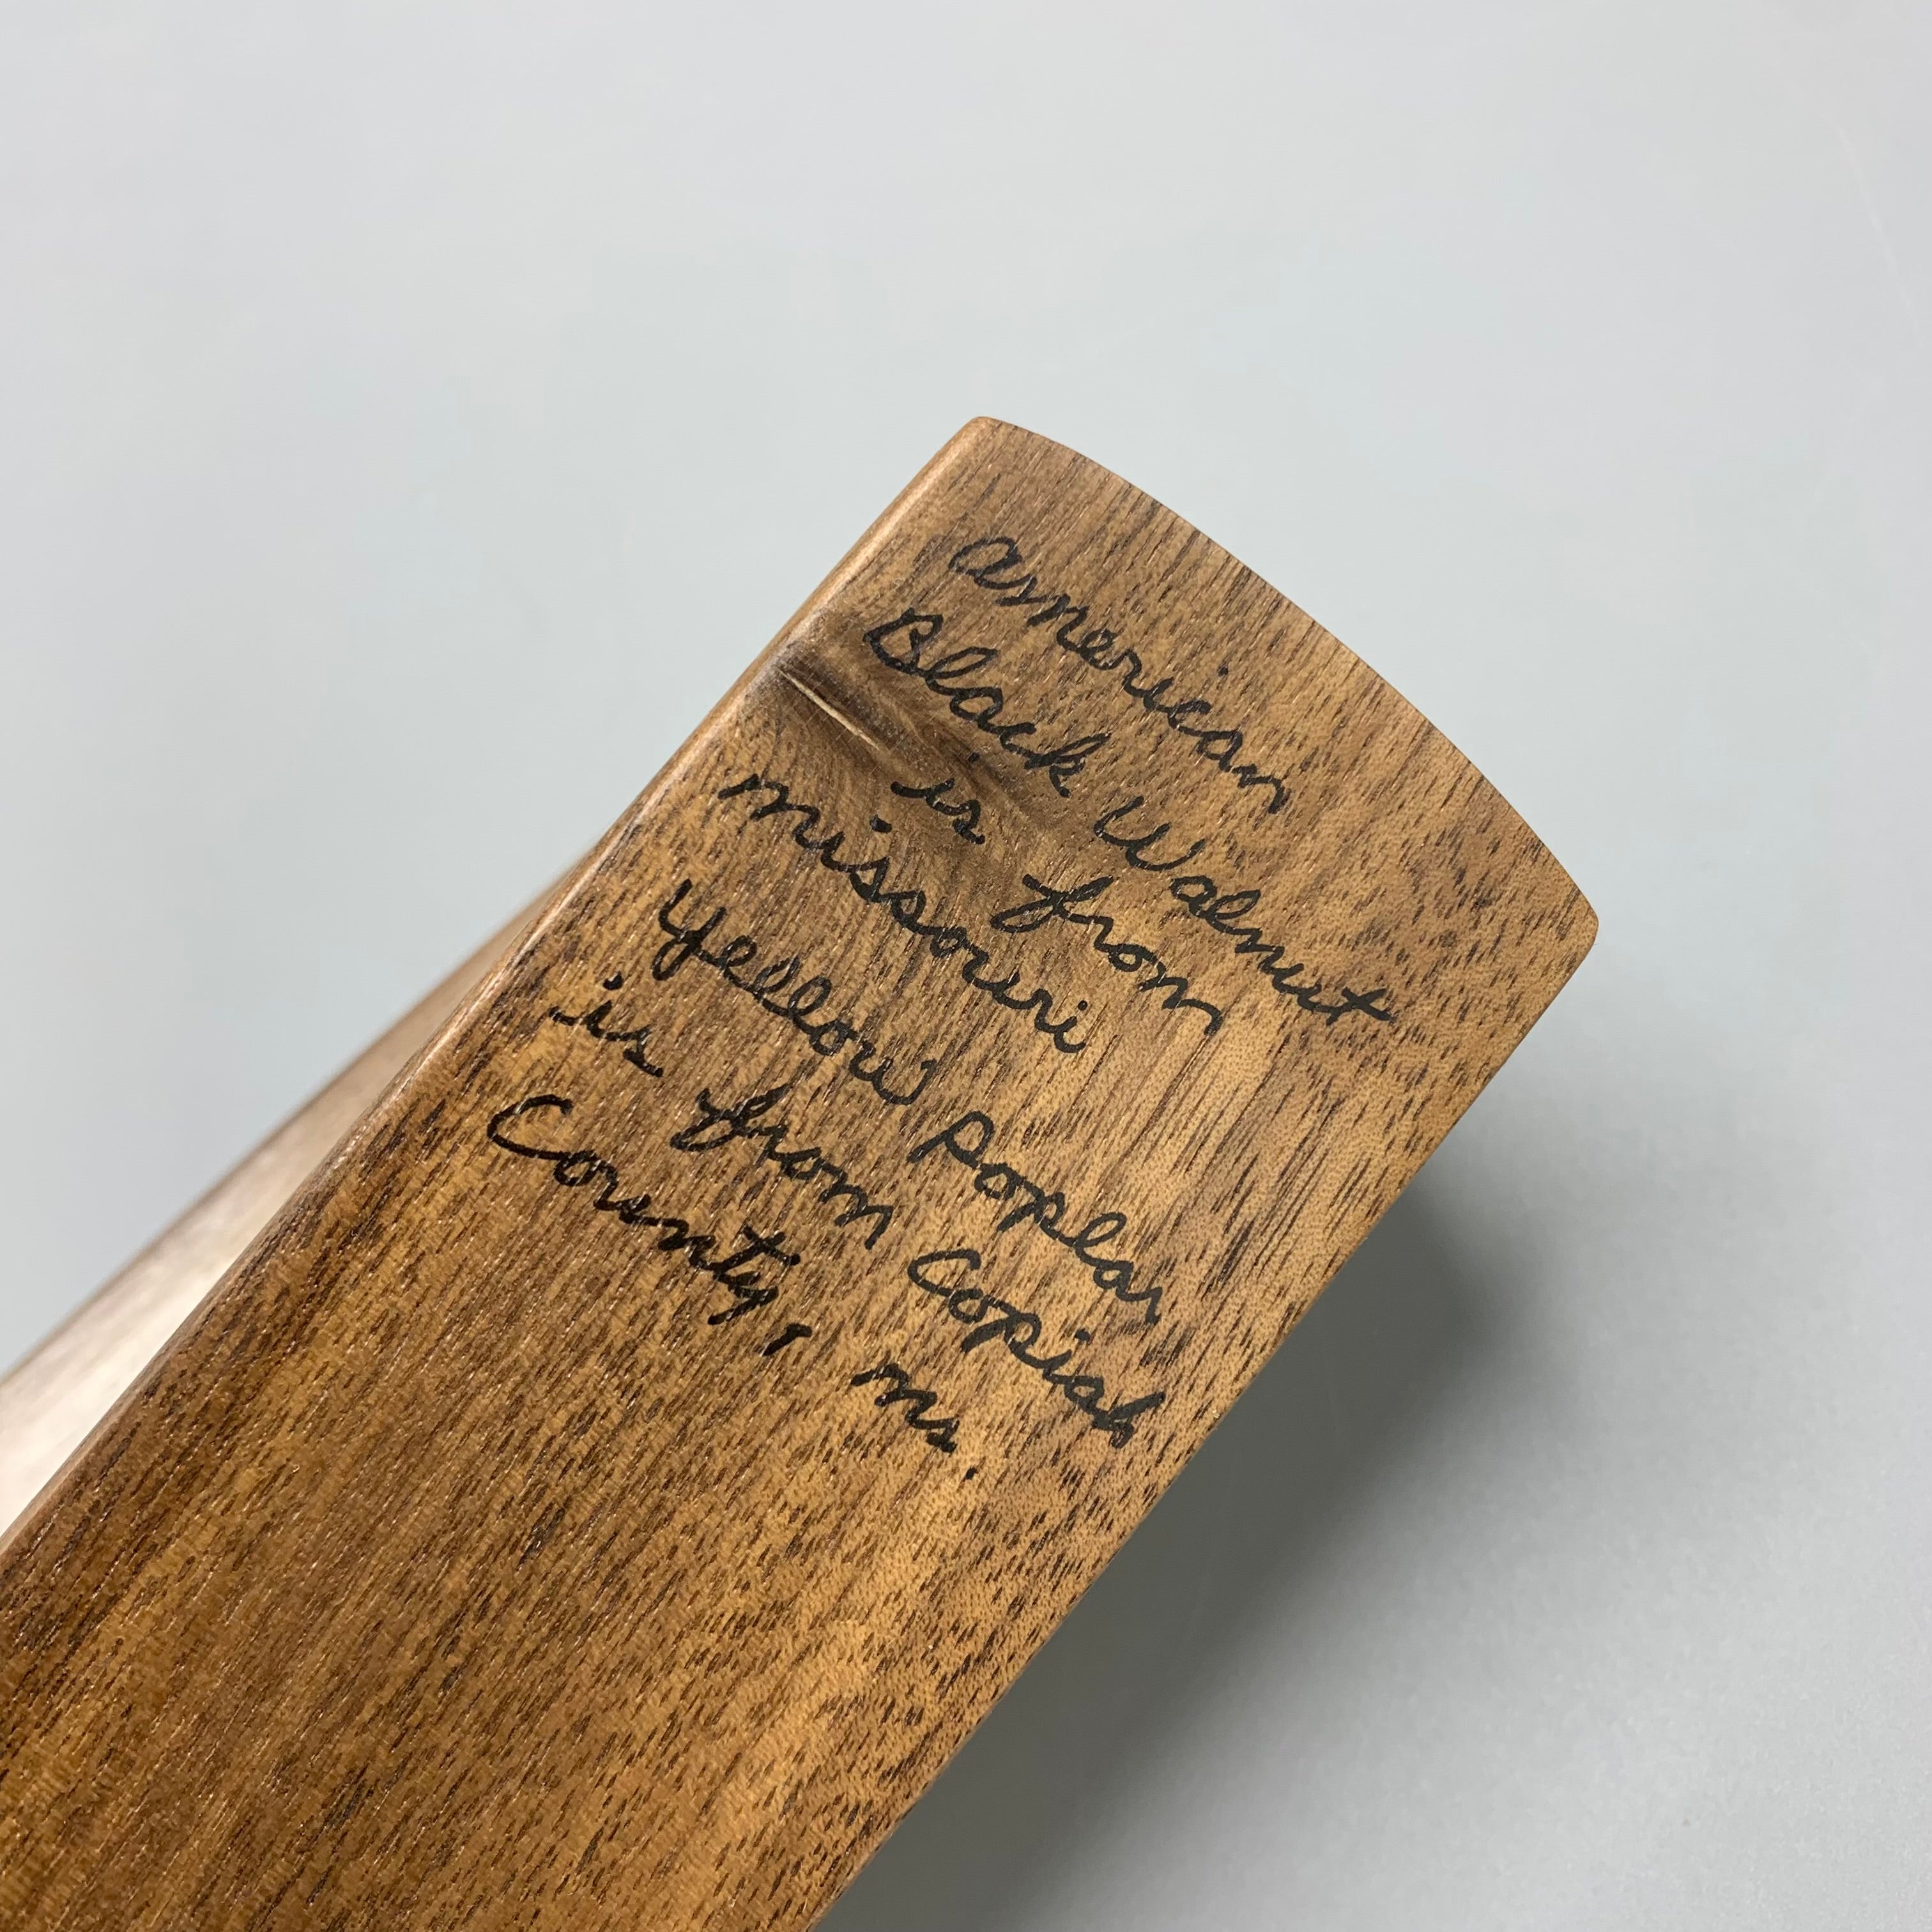 American
Black Walnut
is from
missouri
yellow poplar
is from Copiah
County, ms.